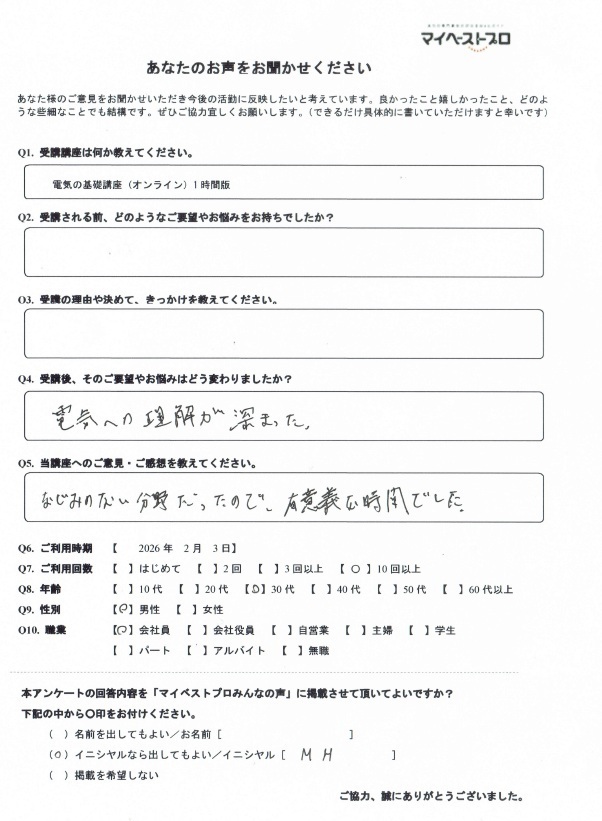 マイベストプロ
あなたのお声をお聞かせください
あなた様のご意見をお聞かせいただき今後の活動に反映したいと考えています。良かったこと嬉しかったこと、どのよ
うな些細なことでも結構です。ぜひご協力宜しくお願いします。（できるだけ具体的に書いていただけますと幸いです）
Q1. 受講講座は何か教えてください。
電気の基礎講座（オンライン）1時間版
Q2. 受講される前、どのようなご要望やお悩みをお持ちでしたか？
Q3. 受講の理由や決めて、きっかけを教えてください。
Q4. 受講後、そのご要望やお悩みはどう変わりましたか？
電気への理解が深まった。
Q5. 当講座へのご意見・ご感想を教えてください。
なじみのない分野だったので、有意義な時間でした。
Q6. ご利用時期 【 2026年 2月 3日】
Q7. ご利用回数 【 】はじめて 【 】2回 【 】3回以上 【 〇 】10回以上
Q8. 年齢 【 】10代 【 】20代 【〇】30代 【 】40代 【 】50代 【 】60代以上
Q9. 性別 【〇】男性 【 】女性
Q10. 職業 【〇】会社員 【 】会社役員 【 】自営業 【 】主婦 【 】学生
【 】パート 【 】アルバイト 【 】無職
本アンケートの回答内容を「マイベストプロみんなの声」に掲載させて頂いてよいですか？
下記の中から〇印をお付けください。
（ ）名前を出してもよい／お名前［ ］
（〇）イニシャルなら出してもよい／イニシャル［ M H ］
（ ）掲載を希望しない
ご協力、誠にありがとうございました。